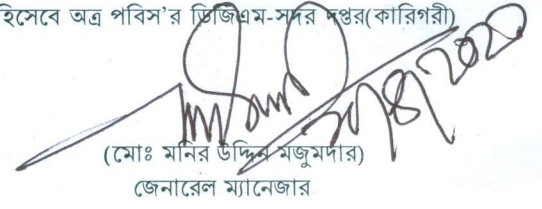 হিসেবে অত্র পবিস'র ডিজিএম-সদর দপ্তর(কারিগরী)
(মোঃ মনির উদ্দিন মজুমদার)
জেনারেল ম্যানেজার